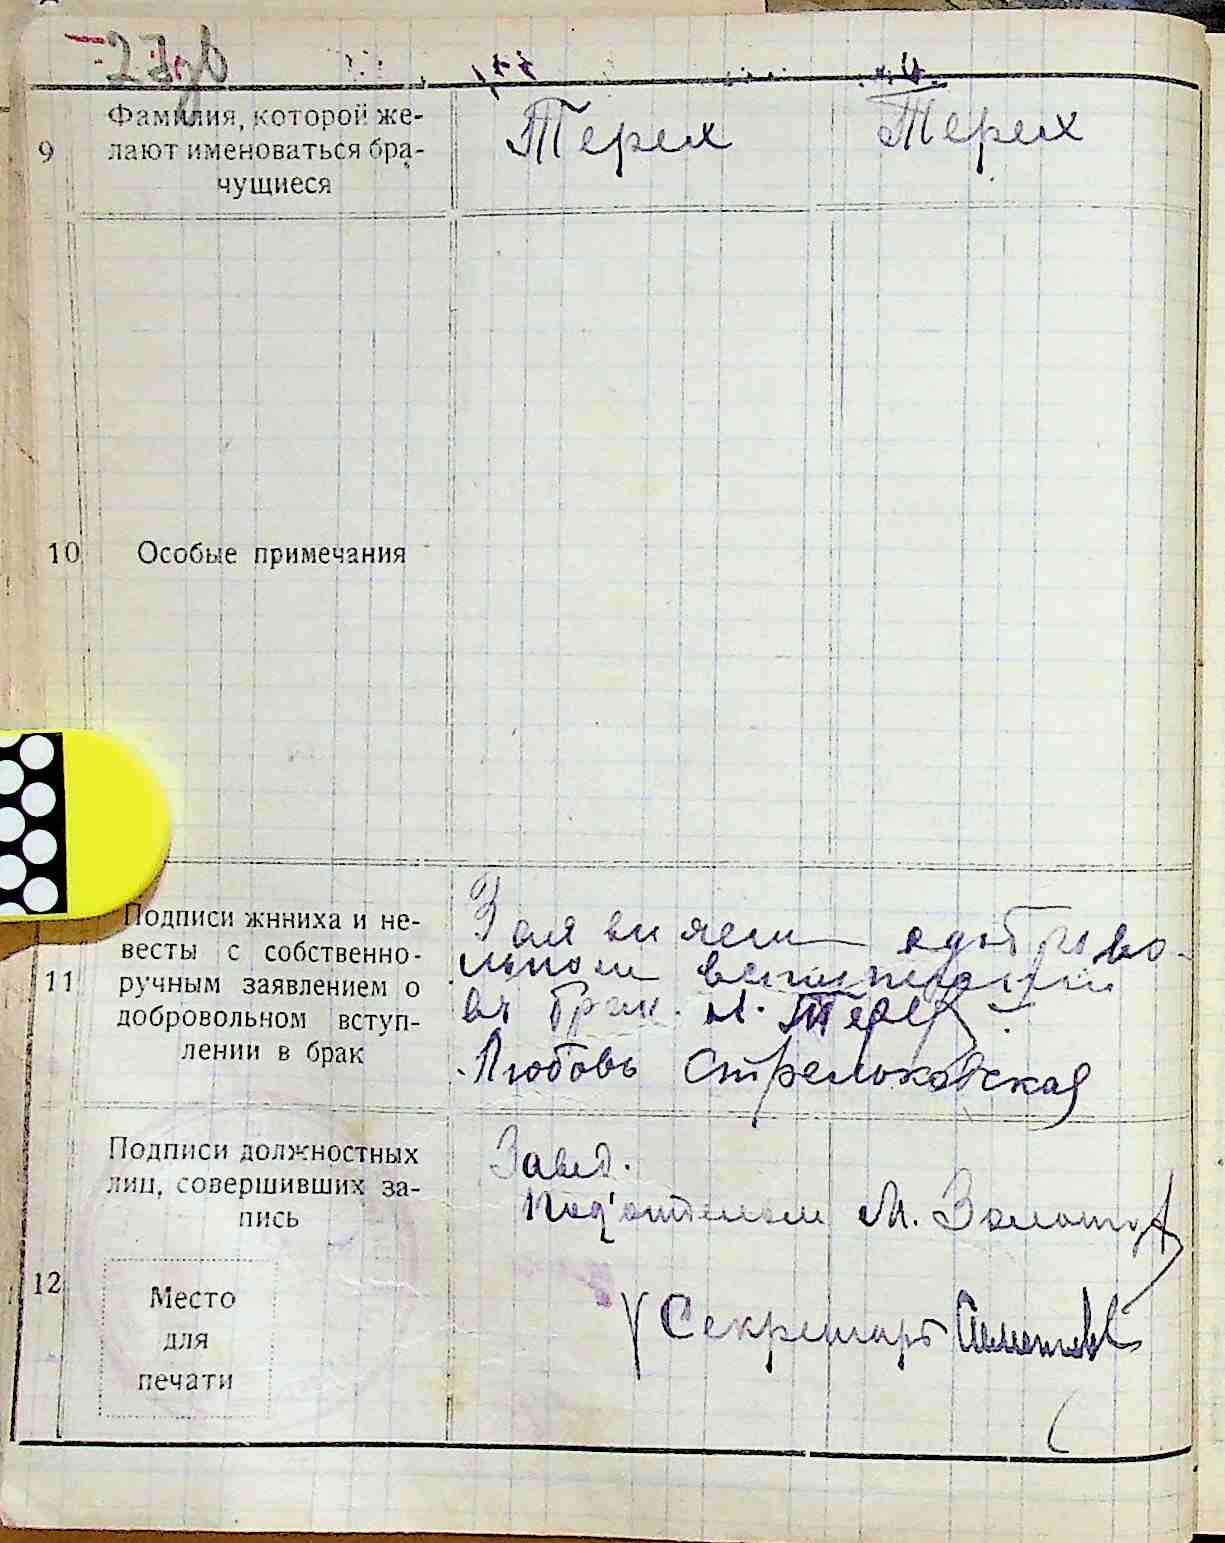 27дв
9
Фамилия, которой же-
лают именоваться бра-
чущиеся
Терех
Терех
10
Особые примечания
11
Подписи жнниха и не-
весты с собственно-
ручным заявлением о
добровольном вступ-
лении в брак
о доброво-
льном вступлении
в брак. Тере
Любовь Стрельковская
12
Подписи должностных
лиц, совершивших за-
пись
Место
для
печати
Завед.
Под'отделом М. Золоту
Секретарь